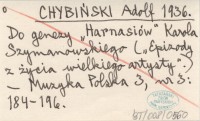 CHYBIŃSKI Adolf 1936.
Do genezy "Harnasiów" Karola
Szymanowskiego („Epizody
z życia wielkiego artysty").
— Muzyka Polska 3, nr 5:
184-196.